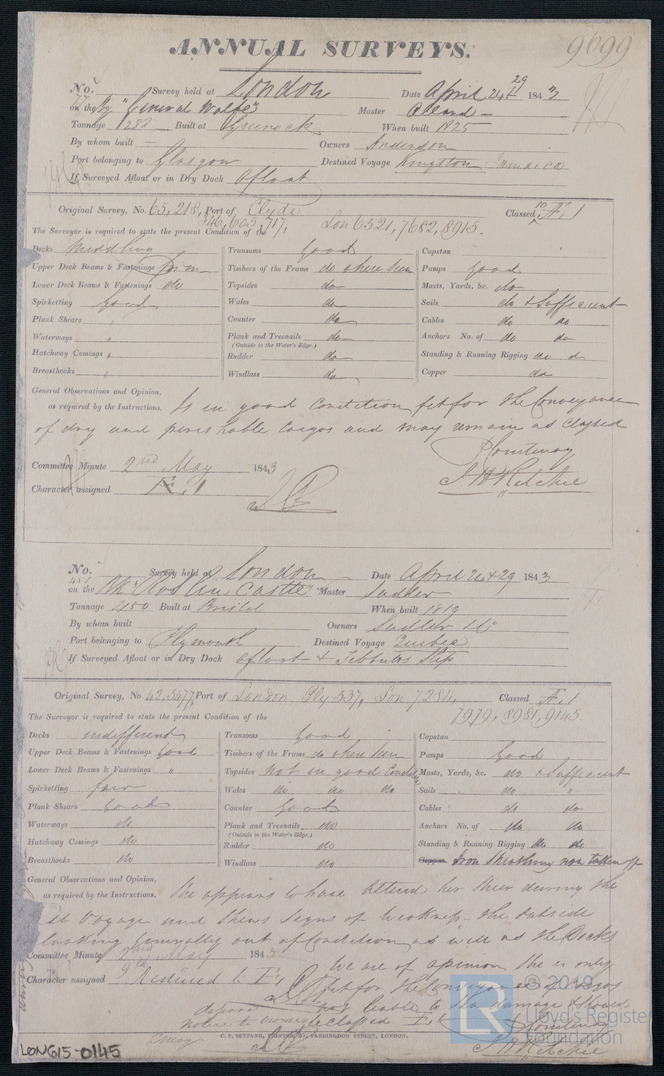 ANNUAL SURVEYS.
9699
No. 77 Survey held at London Date April 24 & 29 1843
on the "General Wolfe" Master
Tonnage Built at Greenock When built 1825
By whom built — Owners Anderson
Port belonging to Glasgow Destined Voyage Kingston Jamaica
If Surveyed Afloat or in Dry Dock Afloat
Original Survey, No. 65, 218, Port of Clyde Classed Æ 1
The Surveyor is required to state the present Condition of the 717, Lon 6521, 7682, 8915.
Decks Middling Transoms Good Capstan
Upper Deck Beams & Fastenings Timbers of the Frame do where seen Pumps Good
Lower Deck Beams & Fastenings do Topsides do Masts, Yards, &c. do
Spirketting Good Wales do Sails do & Sufficient
Plank Shears " Counter do Cables do do
Waterways " Plank and Treenails do Anchors No. of do do
(Outside to the Water's Edge.)
Hatchway Comings " Rudder do Standing & Running Rigging do do
Breasthooks " Windlass do Copper do
General Observations and Opinion,
as required by the Instructions. Is in good Condition fit for the Conveyance
of dry and perishable Cargos and may remain as Classed
P Courtenay
J H Ritchie
Committee Minute 2nd May 1843
Character assigned Æ 1
No. 451 Survey held at London Date April 24 & 29 1843
on the Bk "Roslin Castle" Master Sadler
Tonnage 450 Built at Bristol When built 1819
By whom built Owners Sadler &
Port belonging to Plymouth Destined Voyage Quebec
If Surveyed Afloat or in Dry Dock Afloat & Slip
Original Survey, No. Port of London Ply 337, Lon 7284, Classed Æ 1
7979, 8981, 9145.
The Surveyor is required to state the present Condition of the
Decks indifferent Transoms Good Capstan
Upper Deck Beams & Fastenings Good Timbers of the Frame do where seen Pumps Good
Lower Deck Beams & Fastenings " Topsides Not in good Condn Masts, Yards, &c. do & Sufficient
Spirketting fair Wales do do do Sails do
Plank Shears Good Counter Good Cables do do
Waterways do Plank and Treenails do Anchors No. of do do
(Outside to the Water's Edge.)
Hatchway Comings do Rudder do Standing & Running Rigging do do
Breasthooks do Windlass do Copper Iron Sheathing not taken off
General Observations and Opinion,
as required by the Instructions. She appears to have altered her Sheer during the
last Voyage and Shews signs of weakness - the outside
looking generally out of Condition as well as the Decks
Committee Minute 2nd May 1843 We are of opinion she is only
Character assigned Reduced to Æ 1 fit for the Conveyance of Cargos
not liable to Sea damage & Should
be Classed Æ 1
P Courtenay
J H Ritchie
C. F. SEYFANG, PRINTER, FARRINGDON STREET, LONDON.
LON615-0145
LR
© 2019
Lloyd's Register
Foundation